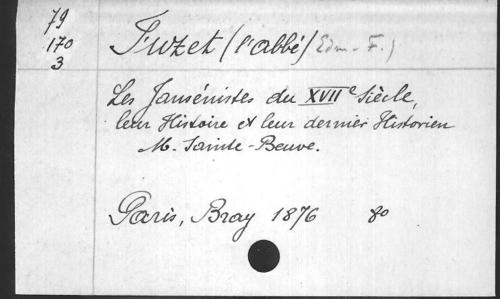 79
170
3
Fuzet (l'abbé) Edm.-F.)
Les Jansénistes du XVIIe Siècle,
leur Histoire et leur dernier Historien
M. Sainte-Beuve.
Paris, Bray 1876 80